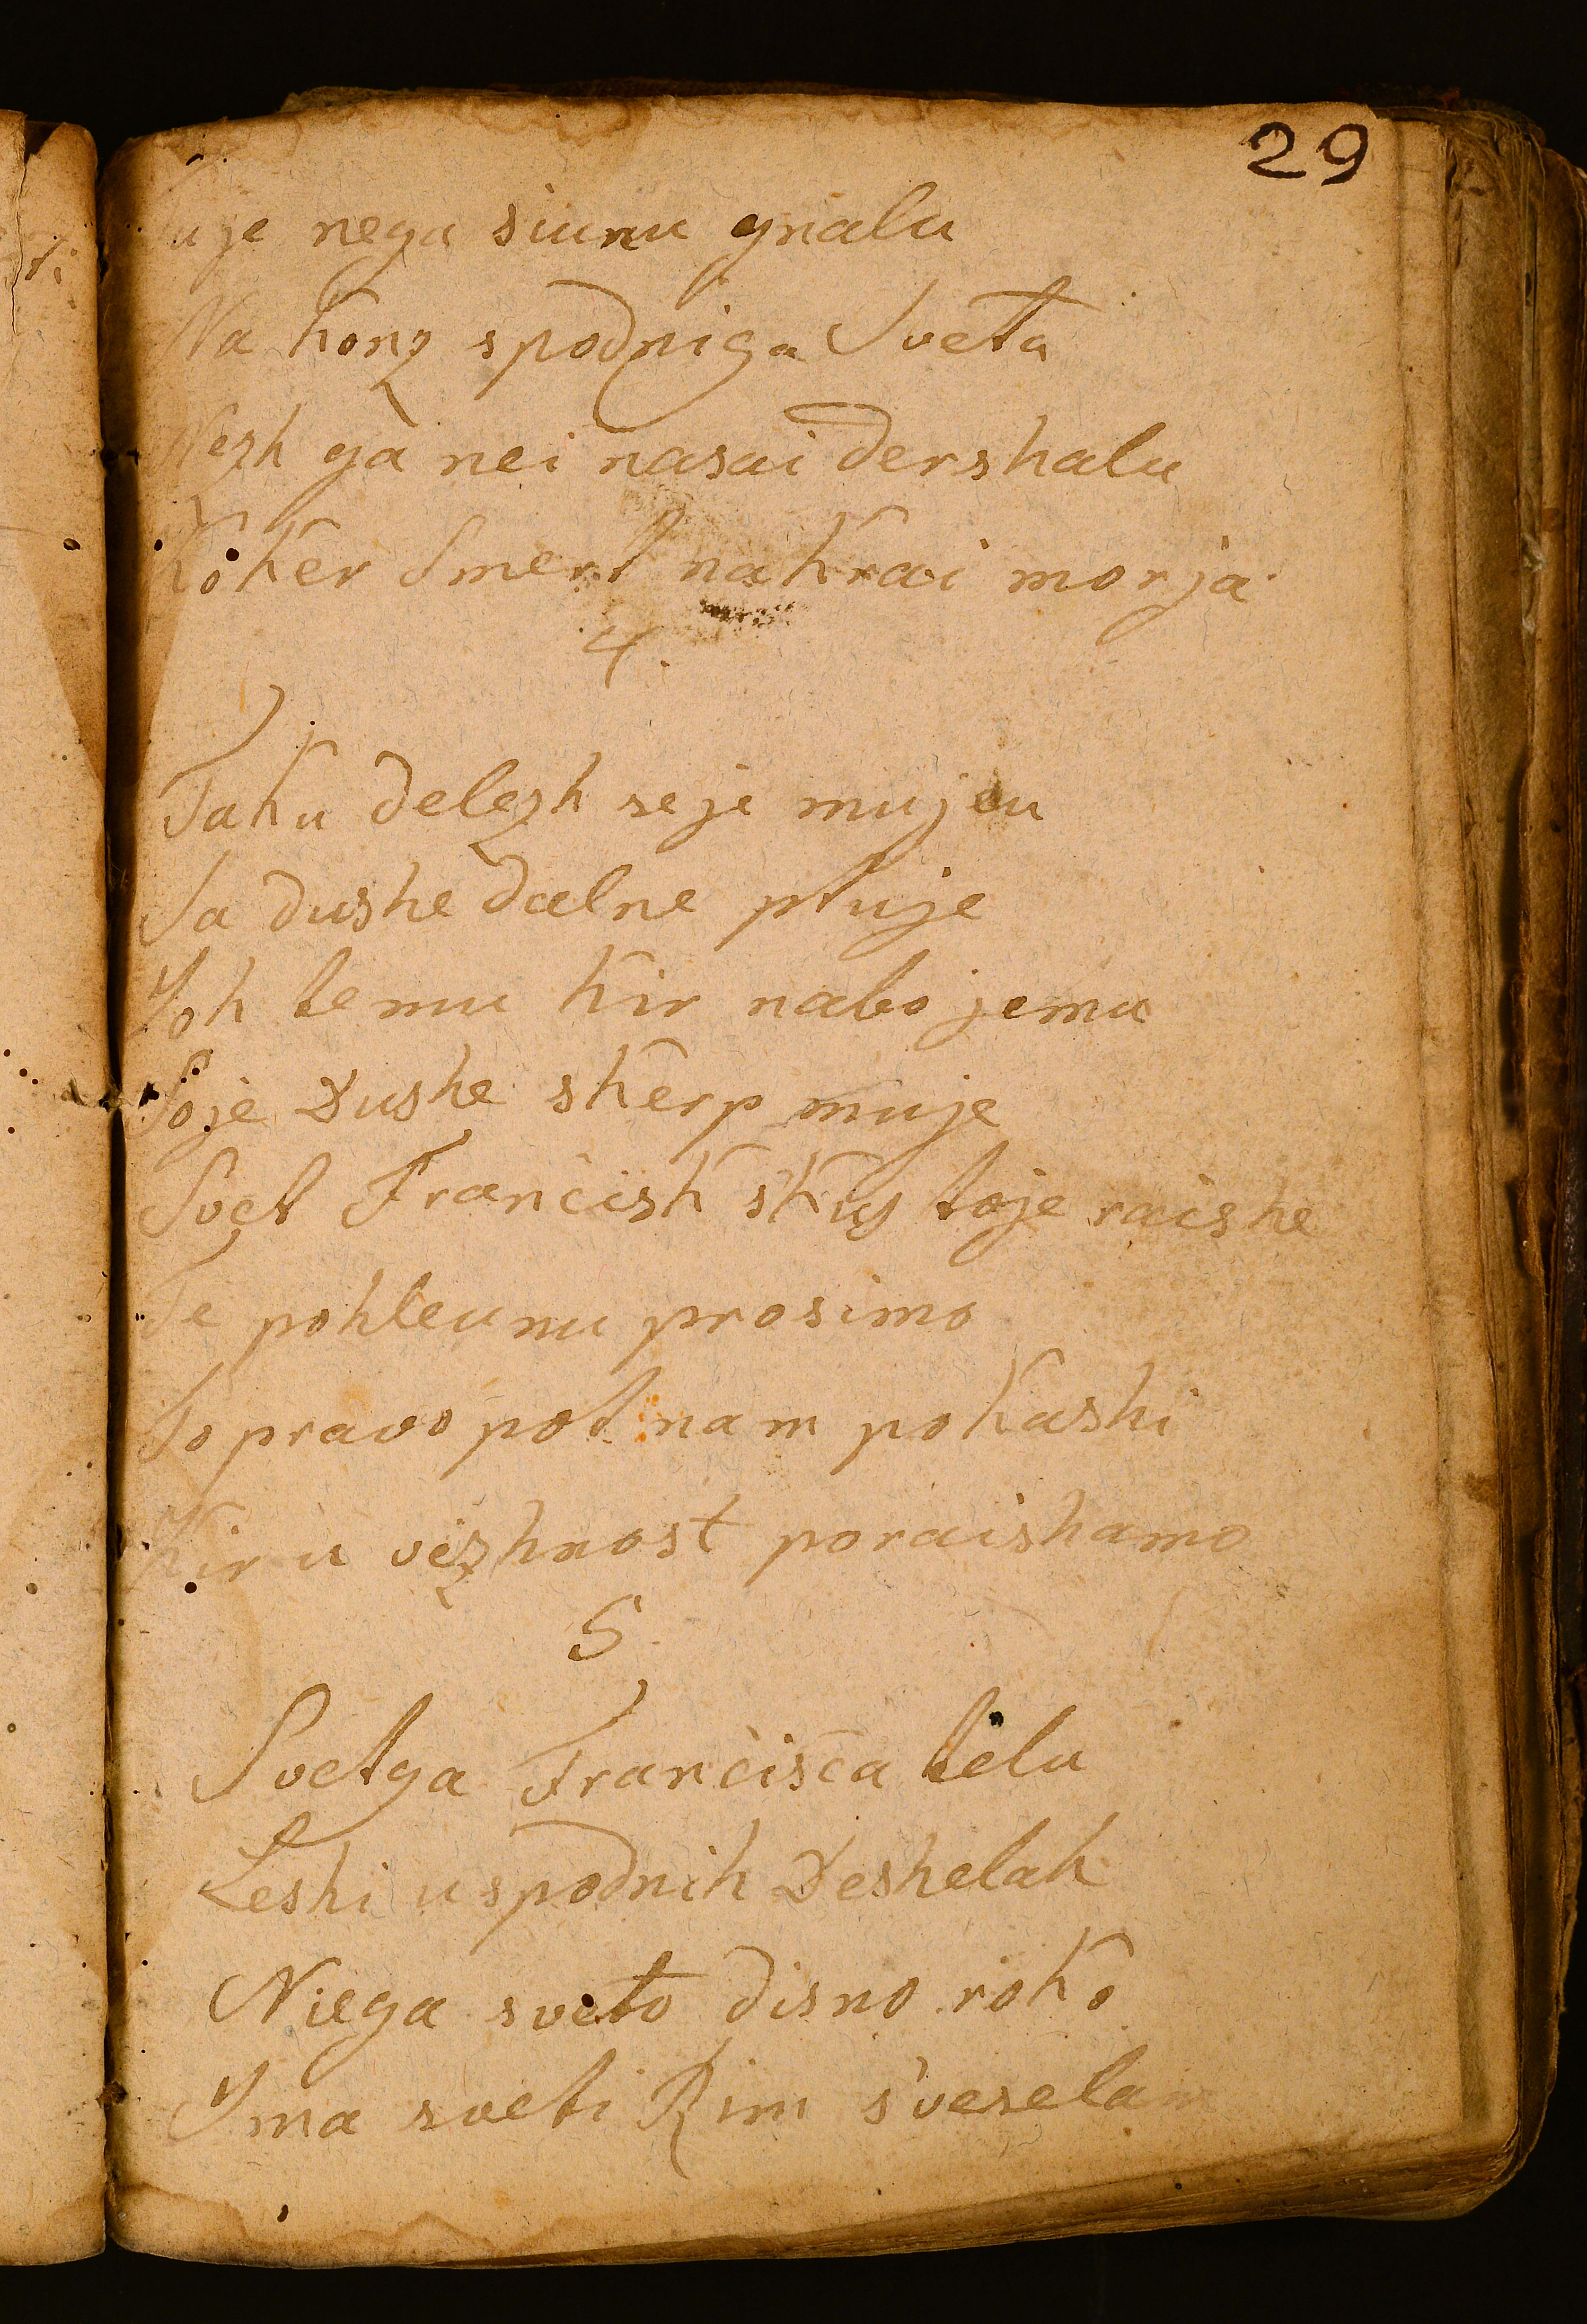 29
Tu je nega siunu gnalu
Na konz spodniga Sveta
Nezh ga nei nasai dershalu
Koker Smert na krai morja
4.
Taku delezh se je mujeu
Sa dushe dalne ptuje
Joh temu kir nabo jemu
Soje Dushe skerp muje
Svet Francisk skus toje raishe
Te pohleunu prosimo
To pravo pot nam pokashi
Kir u vezhnost poraishamo
5
Svetga Francisca telu
Leshi u spodnih Deshelah
Niega sveto disno roko
Jma sveti Rim s'vesela